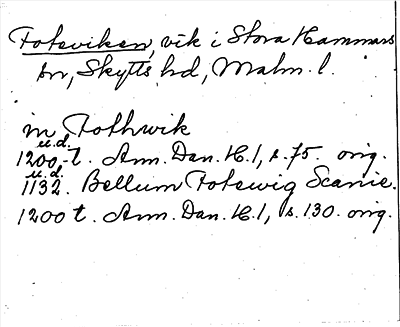 Foteviken, vik i Stora Hammars
sn, Skytts hd, Malm. l.
in Fothwik
u.d.
1200-t. Ann. Dan. H.1, s. 75. orig.
u.d.
1132. Bellum Fotewig Scanie.
1200 t. Ann. Dan. H.1, s. 130. orig.